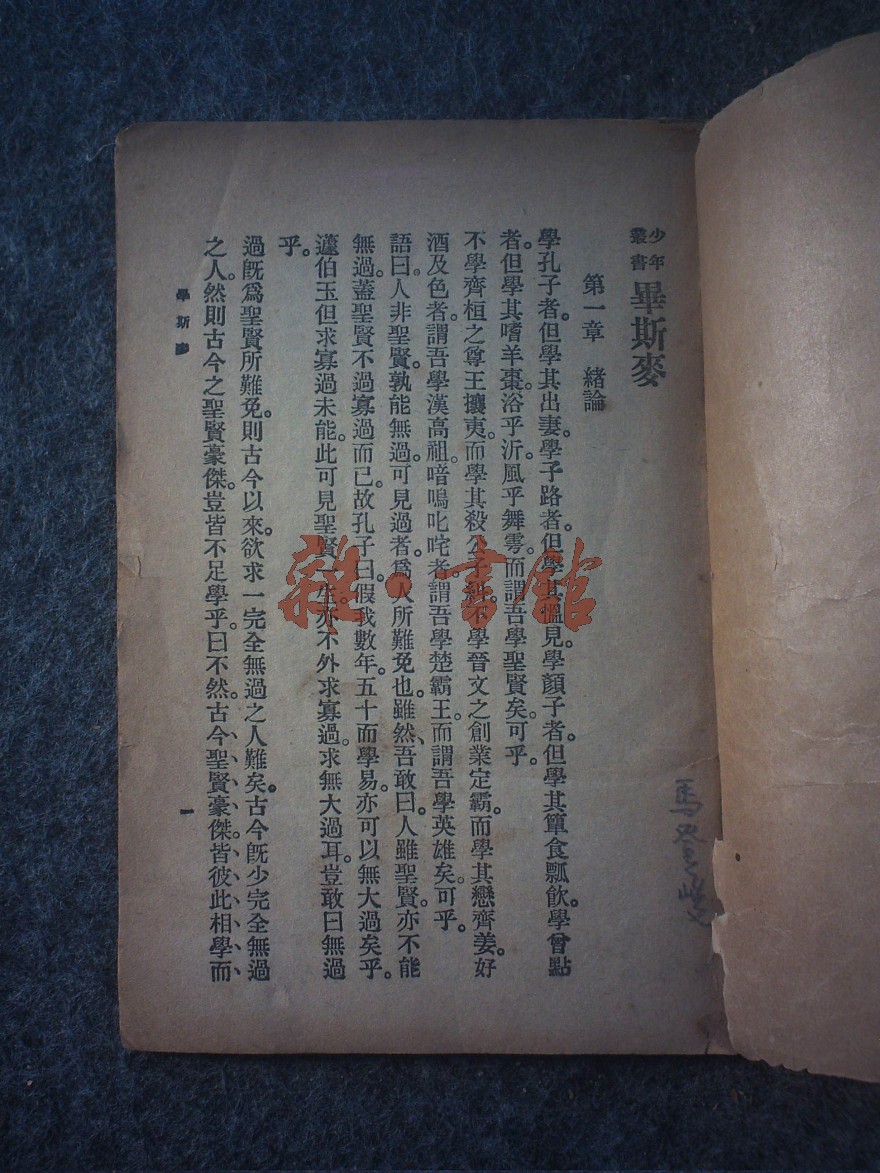 少年叢書
畢斯麥
第一章　緒論
學孔子者。但學其出妻。學子路者。但學其慍見。學顏子者。但學其簞食瓢飮。學曾點
者。但學其嗜羊棗。浴乎沂。風乎舞雩。而謂吾學聖賢矣。可乎。
不學齊桓之尊王攘夷。而學其殺公子糾。不學晉文之創業定霸。而學其戀齊姜。好
酒及色者。謂吾學漢高祖。喑鳴叱咤者。謂吾學楚霸王。而謂吾學英雄矣。可乎。
語曰。人非聖賢。孰能無過。可見過者。爲人所難免也。雖然、吾敢曰。人雖聖賢。亦不能
無過。蓋聖賢不過寡過而已。故孔子曰。假我數年。五十而學易。亦可以無大過矣。
蘧伯玉但求寡過未能。此可見聖賢一生。亦不外求寡過。求無大過耳。豈敢曰無過
乎。
過旣爲聖賢所難免。則古今以來。欲求一完全無過之人難矣。古今旣少完全無過
之人。然則古今之聖賢豪傑。豈皆不足學乎。曰不然。古今聖賢豪傑。皆彼此相學而
畢斯麥
一
雜·書館